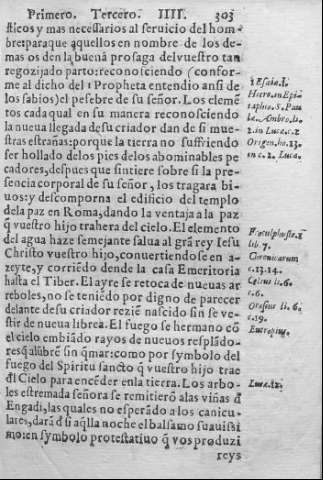 Primero. Tercero. IIII. 303
sticos y mas necessarios al seruicio del hom
bre: para que aquellos en nombre de los de-
mas os den la buena pro saga del vuestro tan
regozijado parto: reconosciendo (confor-
me al dicho del 1 Propheta entendio ansi de
los sabios) el pesebre de su señor. Los elemē
tos cada qual en su manera reconosciendo
la nueua llegada de su criador dan de si mue-
stras estrañas: porque la tierra no suffriendo
ser hollada delos pies delos abominables pe
cadores, despues que sintiere sobre si la pre-
sencia corporal de su señor, los tragara bi-
uos: y descomporna el edificio del templo
dela paz en Roma, dando la ventaja a la paz
q̄ vuestro hijo trahera del cielo. El elemento
del agua haze semejante salua al grā rey Iesu
Christo vuestro hijo, conuertiendose en a-
zeyte, y corriēdo dende la casa Emeritoria
hasta el Tiber. El ayre se retoca de nueuas ar
reboles, no se teniēdo por digno de parecer
delante de su criador rezie nascido sin se ve-
stir de nueua librea. El fuego se hermano cō
el cielo embiādo rayos de nueuos resplādo-
res q̄ alūbrē sin q̄mar: como por symbolo del
fuego del Spiritu sancto q̄ vuestro hijo trae
d̄l Cielo para encēder enla tierra. Los arbo
les estremada señora se remitierō alas viñas d̄
Engadi, las quales no esperādo a los canicu-
lares, darā d̄ si aq̄lla noche el balsamo suauissi
mo: en symbolo protestatiuo q̄ vos produzi
reys
1 Esaiæ. I.
Hiero. in Epi
taphio. S. Pau
læ. Ambro. li.
2. in Luc. c. 2
Origen. ho. 13.
in c. 2. Lucæ.
li. 7.
Chronicarum
c. 13. 14.
li. 6.
c. 6.
Orosius li. 6.
c. 19.
Eutropius.
Lucæ. 12.